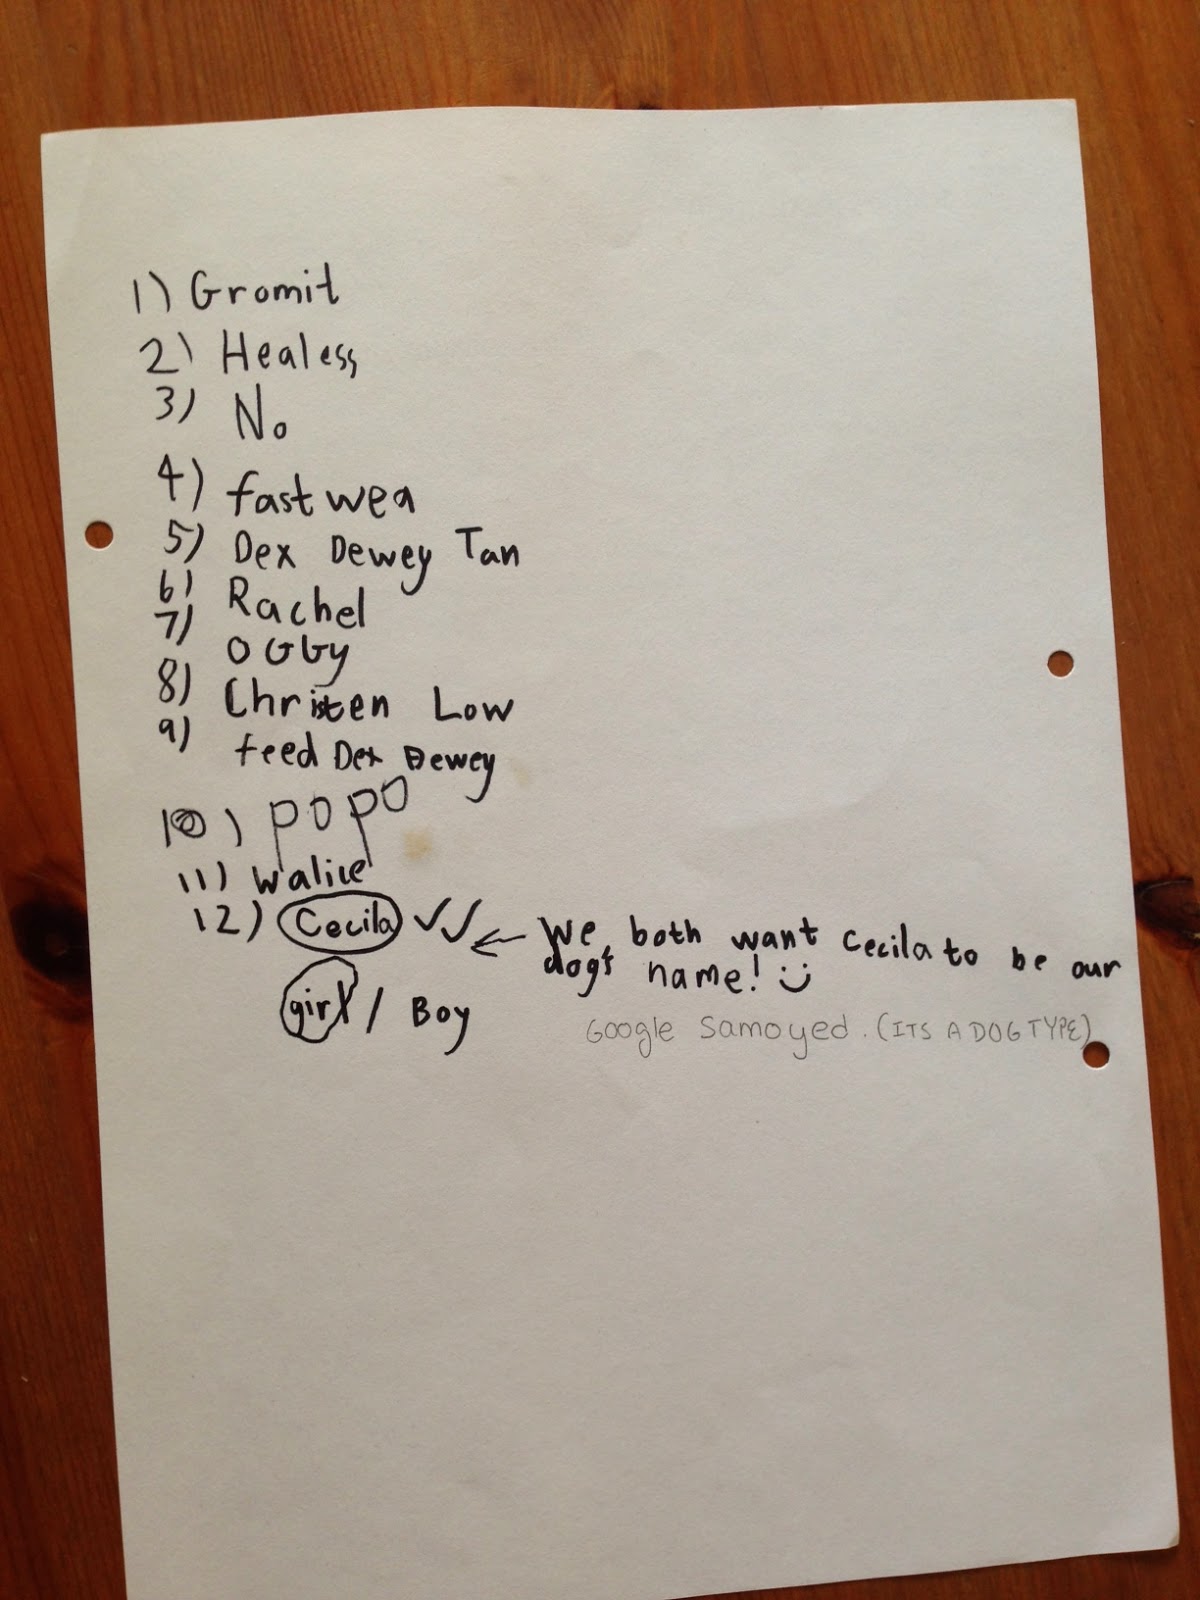 1) Gromit
2) Healess
3) No
4) fastwea
5) Dex Dewey Tan
6) Rachel
7) OGGy
8) Christen Low
9) feed Dex Dewey
10) popo
11) walice
12) Cecila ✓✓ ← We both want Cecila to be our
dog's name! :)
girl / Boy
GOOGLE Samoyed. (ITS A DOG TYPE)